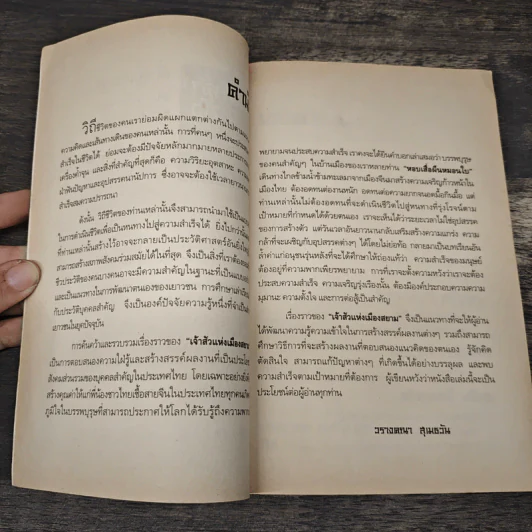 คำนำ
วิถีชีวิตของคนเราย่อมผิดแผกแตกต่างกันไปตาม
ความคิดและเส้นทางเดินของคนเหล่านั้น การที่คนๆ หนึ่งจะประสบ
สำเร็จในชีวิตได้ ย่อมจะต้องมีปัจจัยหลักมากมายหลายประการ
เครื่องค้ำจุน และสิ่งที่สำคัญที่สุดก็คือ ความวิริยะอุตสาหะ
ฝ่าฟันปัญหาและอุปสรรคนานัปการ ซึ่งอาจจะต้องใช้เวลายาวนาน
สำเร็จสมความปรารถนา
ดังนั้น วิถีชีวิตของท่านเหล่านั้นจึงสามารถนำมาใช้เป็น
ในการดำเนินชีวิตเพื่อเป็นหนทางไปสู่ความสำเร็จได้ ยิ่งไปกว่านั้น
ที่ท่านเหล่านั้นสร้างไว้อาจจะกลายเป็นประวัติศาสตร์อัน
สามารถสร้างสภาพสังคมร่วมสมัยได้ในที่สุด จึงเป็นสิ่งที่เราต้อง
ชีวประวัติของคนบางคนอาจจะมีความสำคัญในฐานะที่เป็น
และเป็นแนวทางในการพัฒนาตนเองของเยาวชน การศึกษาเล่าเรียน
กับประวัติบุคคลสำคัญ จึงเป็นองค์ปัจจัยความรู้หนึ่งที่จำเป็น
เยาวชนในยุคปัจจุบัน
การค้นคว้าและรวบรวมเรื่องราวของ "เจ้าสัวแห่งเมืองสยาม"
เป็นการตอบสนองความใฝ่รู้และสร้างสรรค์ผลงานที่เป็นประโยชน์
สังคมส่วนรวมของบุคคลสำคัญในประเทศไทย โดยเฉพาะอย่างยิ่ง
สร้างคุณค่าให้แก่พี่น้องชาวไทยเชื้อสายจีนในประเทศไทยทุกคน
ภูมิใจในบรรพบุรุษที่สามารถประกาศให้โลกได้รับรู้ถึงความ
พยายามจนประสบความสำเร็จ เราคงจะได้ยินคำบอกเล่าเสมอว่า บรรพบุรุษ
ของคนสำคัญๆ ในบ้านเมืองของเราหลายท่าน "หอบเสื่อผืนหมอนใบ"
เดินทางไกลข้ามน้ำข้ามทะเลมาจากเมืองจีนมาสร้างความเจริญก้าวหน้าใน
เมืองไทย ต้องอดทนต่องานหนัก อดทนต่อความยากจนอดมื้อกินมื้อ แต่
ท่านเหล่านั้นไม่ต้องอดทนที่จะดำเนินชีวิตไปสู่หนทางที่รุ่งโรจน์ตาม
เป้าหมายที่กำหนดได้ด้วยตนเอง เราจะเห็นได้ว่าระยะเวลาไม่ใช่อุปสรรค
ของการสร้างตัว แต่วันเวลาอันยาวนานกลับเสริมสร้างความแกร่ง ความ
กล้าที่จะเผชิญกับอุปสรรคต่างๆ ได้โดยไม่ย่อท้อ กลายมาเป็นบทเรียนอัน
ล้ำค่าแก่อนุชนรุ่นหลังที่จะได้ศึกษาให้ถ่องแท้ว่า ความสำเร็จของมนุษย์
ต้องอยู่ที่ความพากเพียรพยายาม การที่เราจะตั้งความหวังว่าเราจะต้อง
ประสบความสำเร็จ ความเจริญรุ่งเรืองนั้น ต้องมีองค์ประกอบความความ
มุมานะ ความตั้งใจ และการต่อสู้เป็นสำคัญ
เรื่องราวของ "เจ้าสัวแห่งเมืองสยาม" จึงเป็นแนวทางที่จะให้ผู้อ่าน
ได้พัฒนาความรู้ความเข้าใจในการสร้างสรรค์ผลงานต่างๆ รวมถึงสามารถ
ศึกษาวิธีการที่จะสร้างผลงานที่ตอบสนองแนวคิดของตนเอง รู้จักคิด
ตัดสินใจ สามารถแก้ปัญหาต่างๆ ที่เกิดขึ้นได้อย่างบรรลุผล และพบ
ความสำเร็จตามเป้าหมายที่ต้องการ ผู้เขียนหวังว่าหนังสือเล่มนี้จะเป็น
ประโยชน์ต่อผู้อ่านทุกท่าน
วรางคณา สุเมธวัน